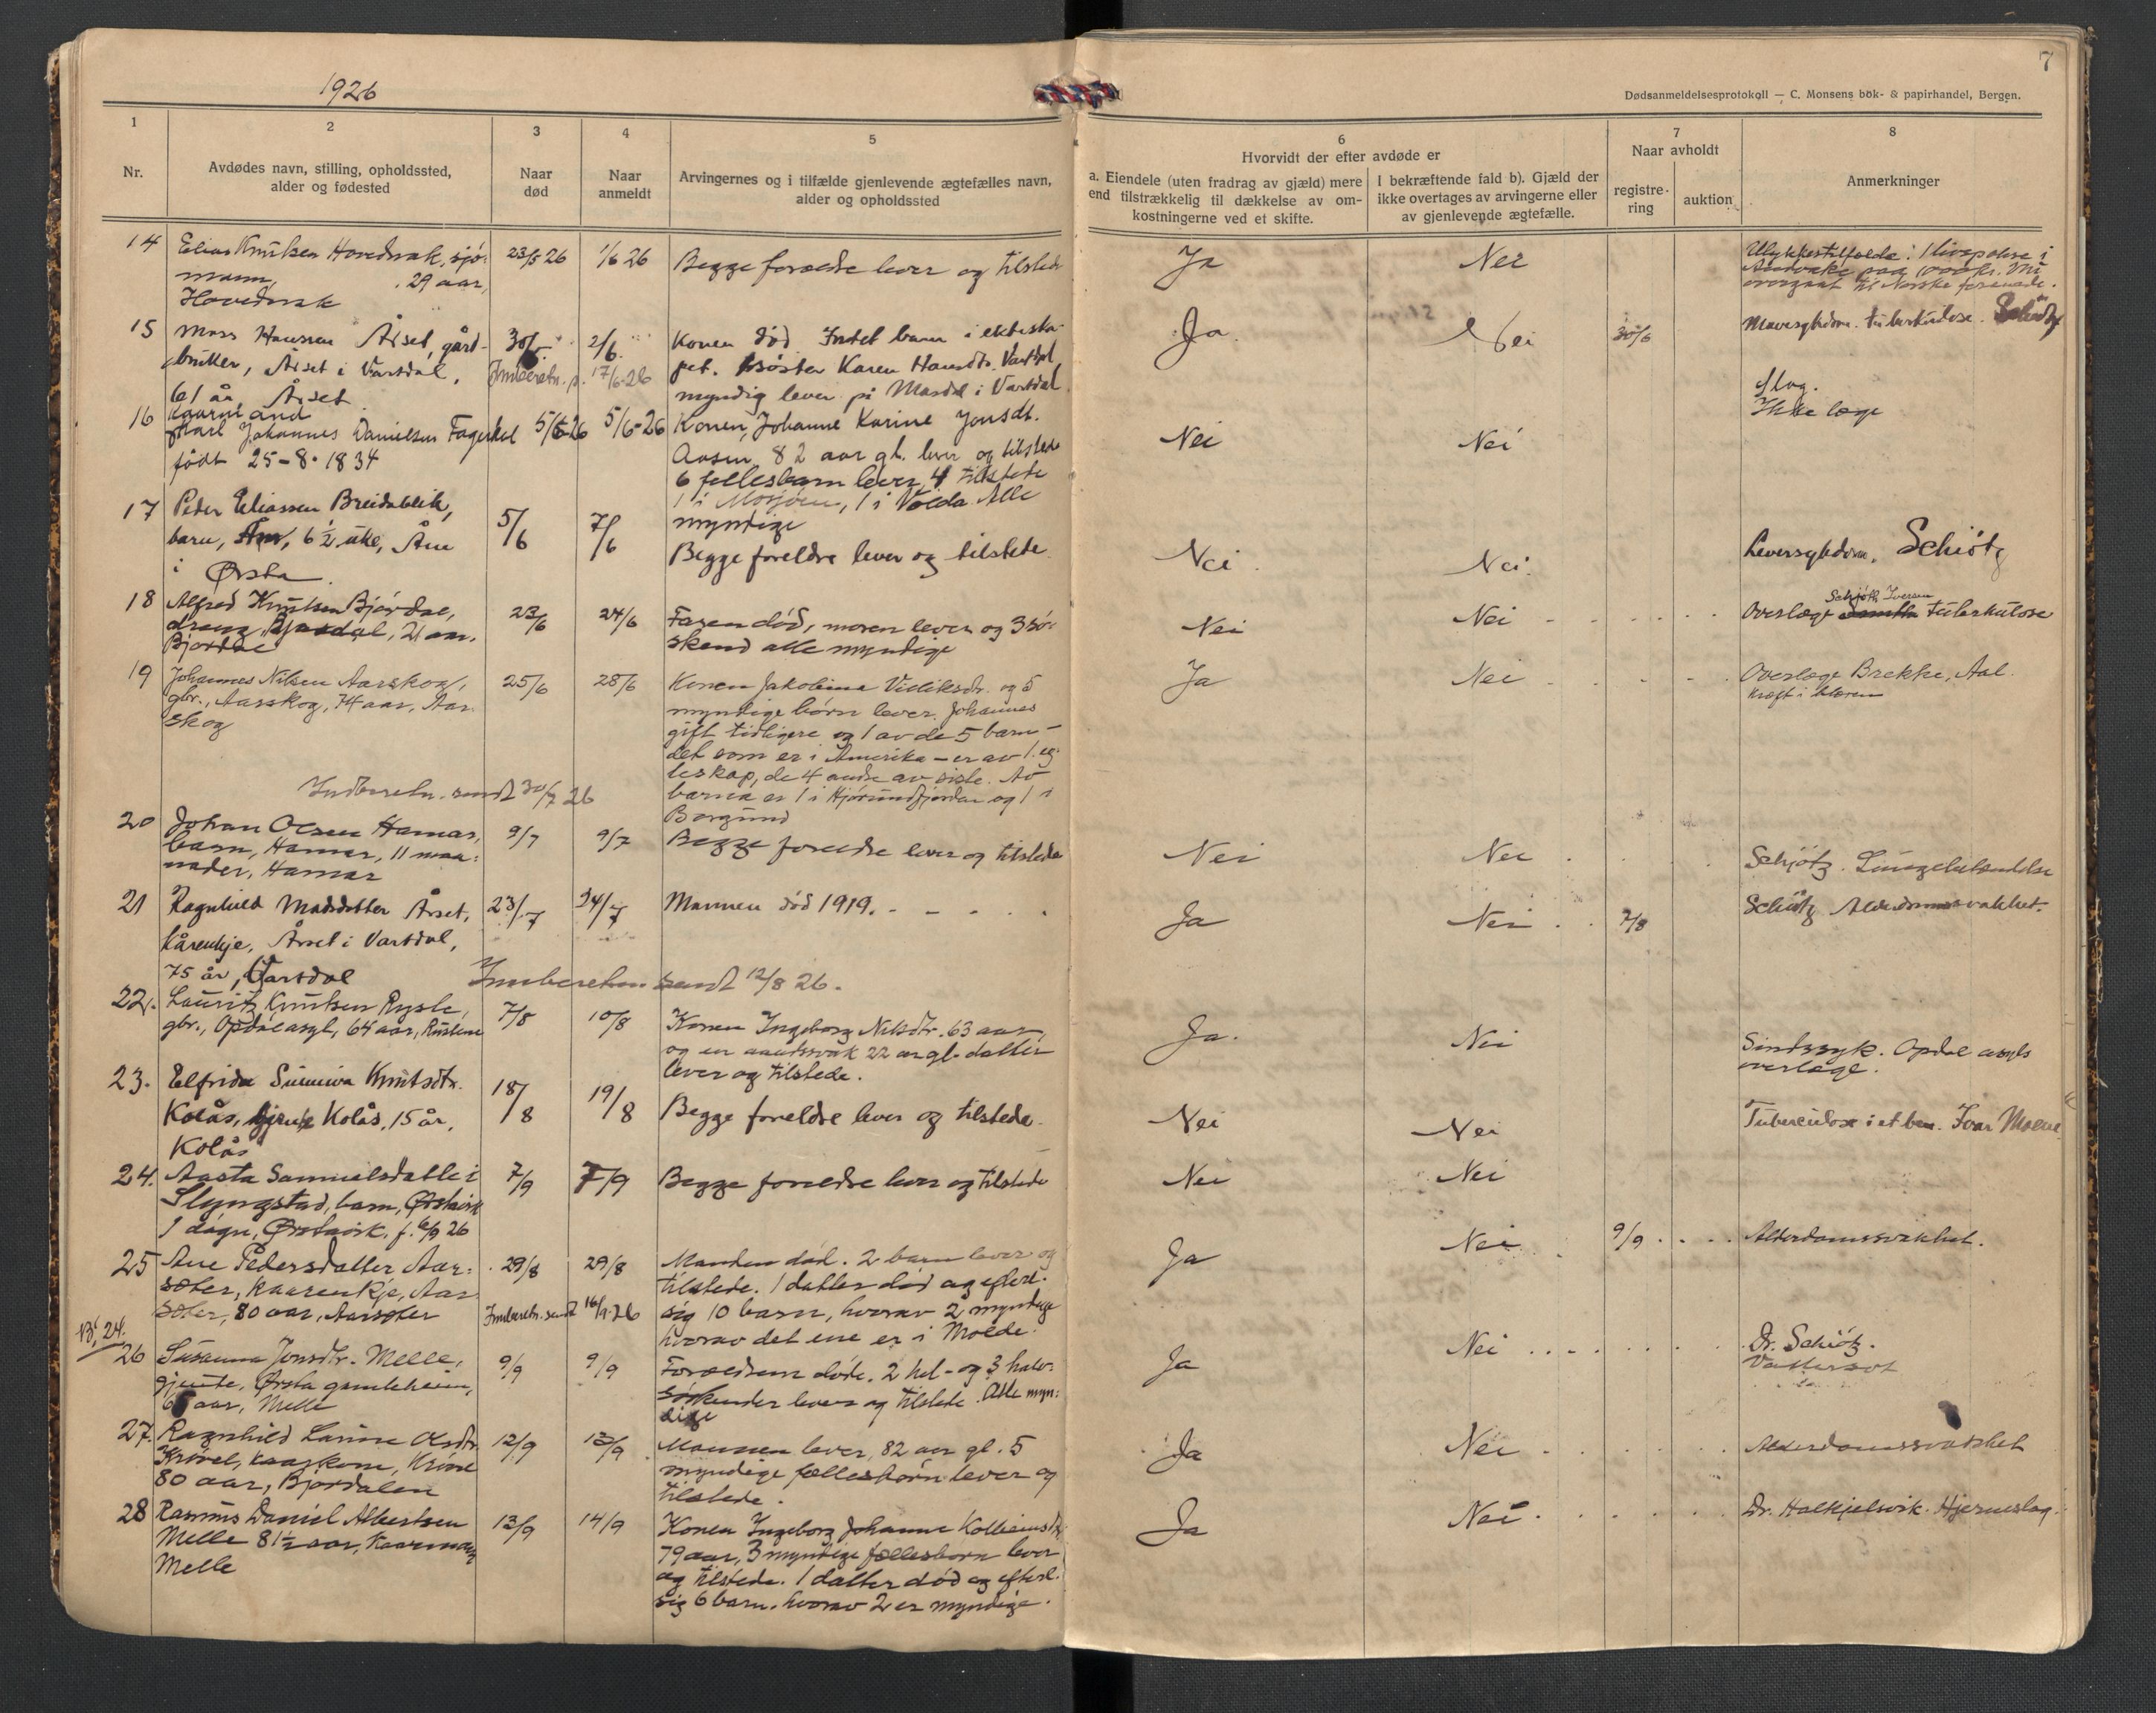 1926
7
Dødsanmeldelsesprotokoll — C. Monsens bok- & papirhandel, Bergen.
1
2
3
4
5
6
7
8
Nr.
Avdødes navn, stilling, opholdssted,
alder og fødested
Naar
død
Naar
anmeldt
Arvingernes og i tilfælde gjenlevende ægtefælles navn,
alder og opholdssted
Hvorvidt der efter avdøde er
a. Eiendele (uten fradrag av gjæld) mere
end tilstrækkelig til dækkelse av om-
kostningerne ved et skifte.
I bekræftende fald b). Gjæld der
ikke overtages av arvingerne eller
av gjenlevende ægtefælle.
Naar avholdt
registre-
ring
auktion
Anmerkninger
14
Elias Knutsen Hovdenak, sjø-
mann, 29 aar,
Hovdenak
23/5 26
1/6 26
Begge forældre lever og tilstede
Ja
Nei
Ulykkestilfælde: 1 livspolise i
Andvake paa 1000 kr.
overgaat til Norske forenede.
15
Mass Hanssen Årset, gård-
bruker, Årset i Vartdal,
61 år, Årset
30/5
2/6
Innberetn. s. 17/6-26
Konen død. Intet barn i ekteska-
pet. Søster Karen Hansdtr. Vartdal
myndig lever på Masdal i Vartdal
Ja
Nei
30/6
Mavesykdom. tuberkulose. Schiøtz
16
Kaarmand
Karl Johannes Danielsen Fagerhol
født 25-8-1834
5/6-26
5/6-26
Konen, Johanne Karine Jonsdt.
Aasen 82 aar gl. lever og tilstede
6 fellesbarn lever, 4 tilstede
1 i Mosjøen, 1 i Volda Alle
myndige
Nei
Nei
slag.
Ikke læge
17
Peder Eliassen Breidablik,
barn, 6½ uke, Åm
i Ørsta
5/6
7/6
Begge foreldre lever og tilstede.
Nei
Nei
Leversykdom. Schiötz
18
Alfred Knutsen Bjørdal,
dreng, Bjørdal, 21 aar,
Bjørdal
23/6
24/6
Faren død, moren lever og 3 sø-
skend alle myndige
Nei
Nei
Schiøth Iversen
Overlæge tuberkulose
19
Johannes Nilsen Aarskog,
gbr., Aarskog, 74 aar, Aar-
skog
25/6
28/6
Konen Jakobina Videiksdtr. og 5
myndige børn lever. Johannes
gift tidligere og 1 av de 5 barn -
det som er i Amerika - er av 1. eg-
teskap, de 4 andre av siste. Av
barna er 1 i Hjørundfjorden og 1 i
Borgund
Ja
Nei
Overlæge Brekke, Aal.
kræft i blæren
Indberetn. sendt 30/7 26
20
Johan Olsen Hamar,
barn, Hamar, 11 maa-
nader, Hamar
9/7
9/7
Begge forældre lever og tilstede
Nei
Nei
Schjötz. Lungebetændelse
21
Ragnhild Madsdatter Årset,
kårenkje, Årset i Vartdal,
75 år, Vartdal
23/7
24/7
Mannen død 1919.
Ja
Nei
7/8
Schiøtz Alderdomssvakhet.
Innberetn. sendt 12/8 26.
22.
Lauritz Knutsen Ryste,
gbr., Opdøl asyl, 64 aar, Rustene
7/8
10/8
Konen Ingeborg Nilsdtr. 63 aar
og en aandssvak 22 aar gl. datter
lever og tilstede.
Ja.
Nei
Sindssyk. Opdøl asyls
overlæge.
23.
Elfrida Sunniva Knutsdtr.
Kolås, gjente Kolås, 15 år,
Kolås
18/8
19/8
Begge foreldre lever og tilstede.
Nei
Nei
Tuberculose i et ben. Ivar Moene
24.
Aasta Samuelsdatter
Slyngstad, barn, Ørstavik
1 døgn, Ørstavik, f. 6/9 26
7/9
7/9
Begge foreldre lever og tilstede
Nei
Nei
25
Ane Pedersdatter Aar-
sæter, kaarenkje, Aar-
sæter, 80 aar, Aarsæter
29/8
29/8
Innberetn. sendt 16/9-26
Manden død. 2 barn lever og
tilstede. 1 datter død og efterl.
sig 10 barn, hvorav 2 myndige
hvorav det ene er i Molde.
Ja
Nei
9/9
Alderdomssvakhet.
B, 24.
26
Susanna Jonsdtr. Melle,
gjente, Ørsta gamleheim,
aar, Melle
9/9
9/9
Forældrene døde. 2 hel- og 3 halv-
søskender lever og tilstede. Alle myn-
dige
Ja
Nei
Dr. Schiötz.
Vattersot
27.
Ragnhild Larine Olsdtr.
Krøvel, kaarkone, Krøvel
80 aar, Bjørdalen
12/9
13/9
Mannen lever, 82 aar gl. 5
myndige fællesbørn lever og
tilstede.
Ja
Nei
Alderdomssvakhet
28
Rasmus Daniel Albertsen
Melle 81½ aar, Kaarmann
Melle
13/9
14/9
Konen Ingeborg Johanne Kolbeinsdtr.
79 aar, 3 myndige fællesbørn lever
og tilstede. 1 datter død og efterl.
sig 6 barn, hvorav 2 er myndige.
Ja
Nei
Dr. Halkjelsvik. Hjerneslag.